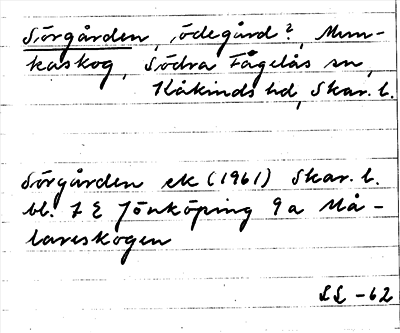 Sörgården, ödegård?, Mun-
kaskog, Södra Fågelås sn,
Kåkinds hd, Skar. l.
Sörgården ek (1961) Skar. l.
bl. 7 E Jönköping 9 a Må-
lareskogen
LL -62